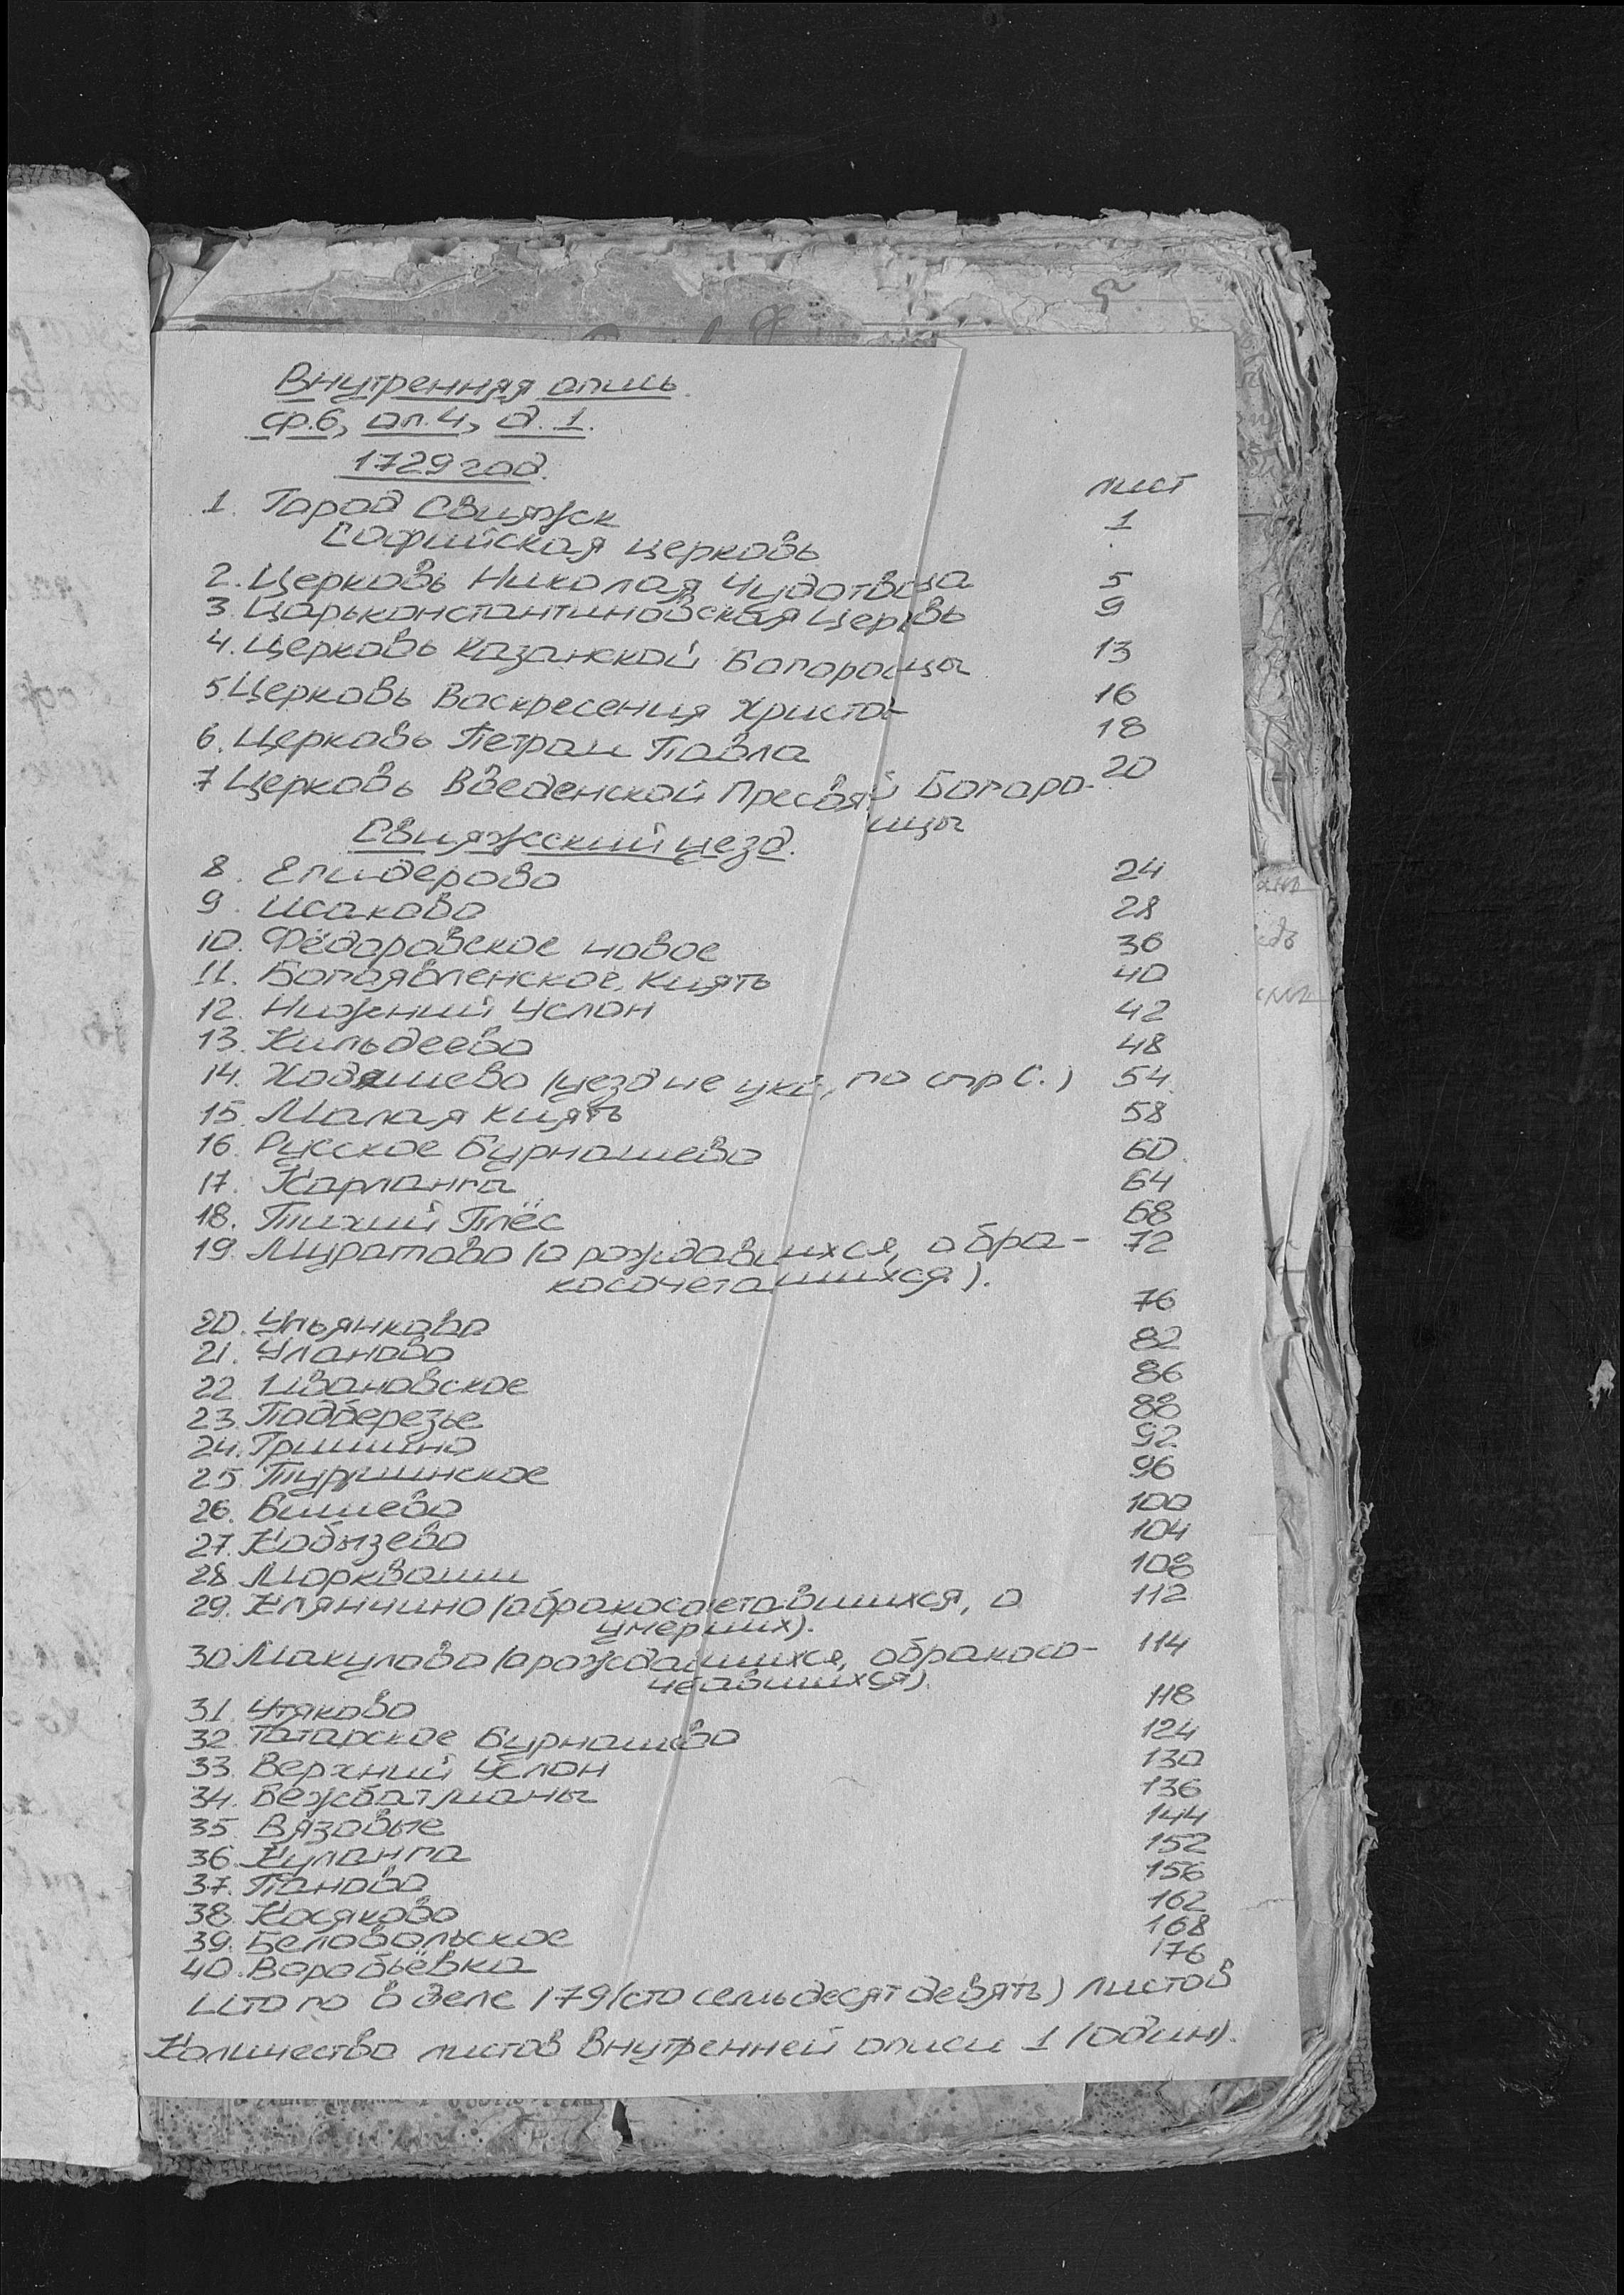 Внутренняя опись
ф.6, оп.4, д. 1.
1729 год.
лист
1. Город Свияжск 1
Софийская церковь
2. Церковь Николая Чудотвоца 5
3. Царьконстантиновская Церковь 9
4. Церковь Казанской Богородицы 13
5 Церковь Воскресения Христа 16
6. Церковь Петра и Павла 18
7 Церковь Введенской Пресвятй Богоро- 20
ицы
Свияжский уезд.
8. Епидерово 24
9. Исаково 28
10. Фёдоровское новое 36
11. Богоявленское, Киять 40
12. Нижний Услон 42
13. Кильдеево 48
14. Ходяшево (уезд не ук., по стр С.) 54
15. Малая Киять 58
16. Русское Бурнашево 60
17. Карланга 64
18. Тихий Плёс 68
19. Муратово (о рождавшихся, о бра- 72
косочетавшихся).
20. Ульянково 76
21. Уланово 82
22 Ивановское 86
23. Подберезье 88
24. Гришино 92
25 Турминское 96
26. Бишево 100
27. Кобызево 104
28 Моркваши 108
29. Клянчино (о бракосочетавшихся, о 112
умерших).
30 Макулово (о рождавшихся, о бракосо- 114
четавшихся).
31 Утяково 118
32 Татарское Бурнашево 124
33. Верхний Услон 130
34. Бежбатманы 136
35. Вязовые 144
36. Куланга 152
37. Паново 156
38. Косяково 162
39. Беловольское 168
40. Воробьёвка 176
Итого в деле 179 (сто семьдесят девять) листов
Количество листов внутренней описи 1 (один).